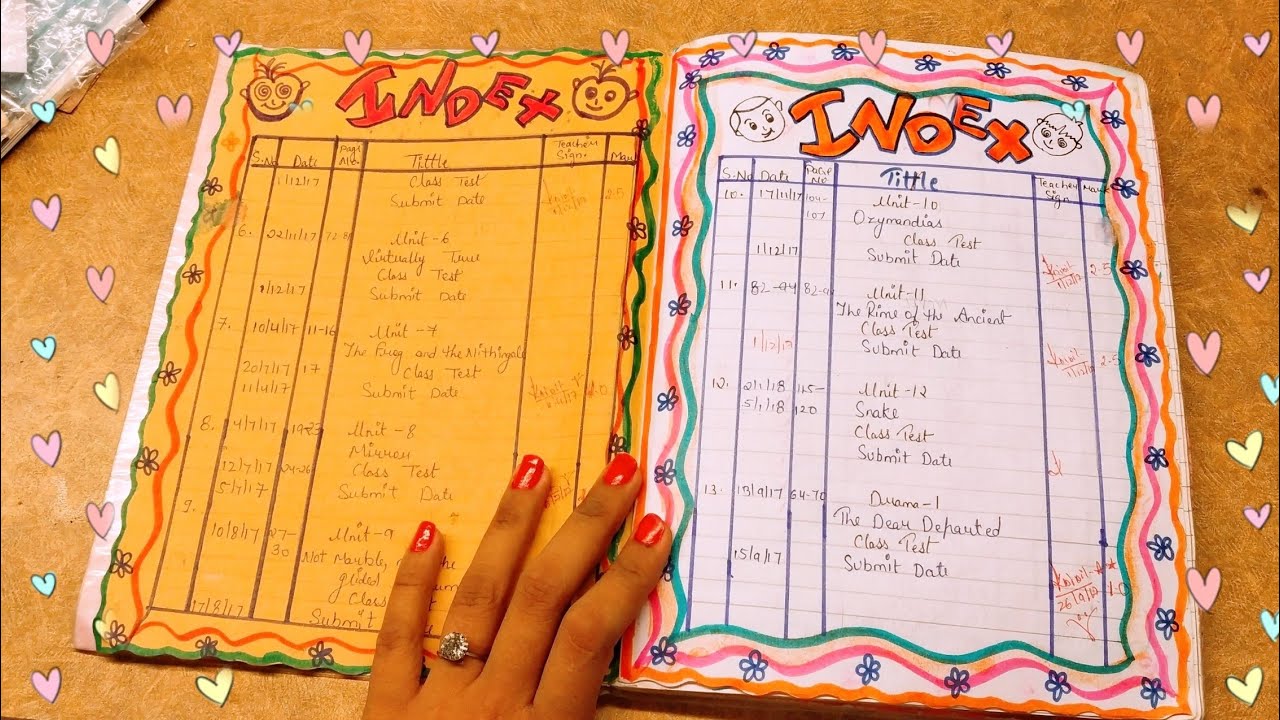 INDEX
S.No Date Page No. Tittle Teacher Sign. Mar
1/12/17 Class Test 2.5
Submit Date
6. 22/11/17 72-81 Unit-6
Virtually True
Class Test
1/12/17 Submit Date
7. 10/4/17 11-16 Unit-7
The Frog and the Nithingale
20/7/17 17 Class Test
11/4/17 Submit Date
8. 4/7/17 19-23 Unit-8
Mirror
12/7/17 24-26 Class Test
5/7/17 Submit Date
9.
10/8/17 27-30 Unit-9
Not Marble, the
gilded
Class
17/8/17 Submit
INDEX
S.No Date Page No Tittle Teacher Sign Mark
10. 17/11/17 104-107 Unit-10
Ozymandias
Class Test
1/12/17 Submit Date 1/12/17 2.5
11. 82-94 82-9 Unit-11
The Rime of the Ancient
Class Test
1/12/17 Submit Date 1/12/17 2.5
12. 2/1/18 Unit-12
5/1/18 120 Snake
Class Test
Submit Date
13. 13/9/17 64-70 Drama-1
The Dear Departed
Class Test
15/9/17 Submit Date